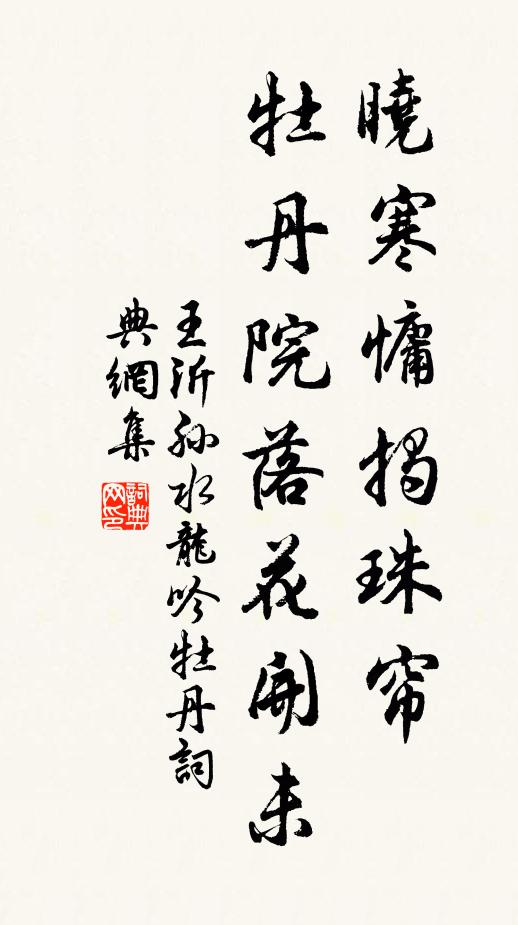 曉寒慵揭珠帘
牡丹院落花開未
王沂孙水龍吟牡丹詞
典網集
詞典网印